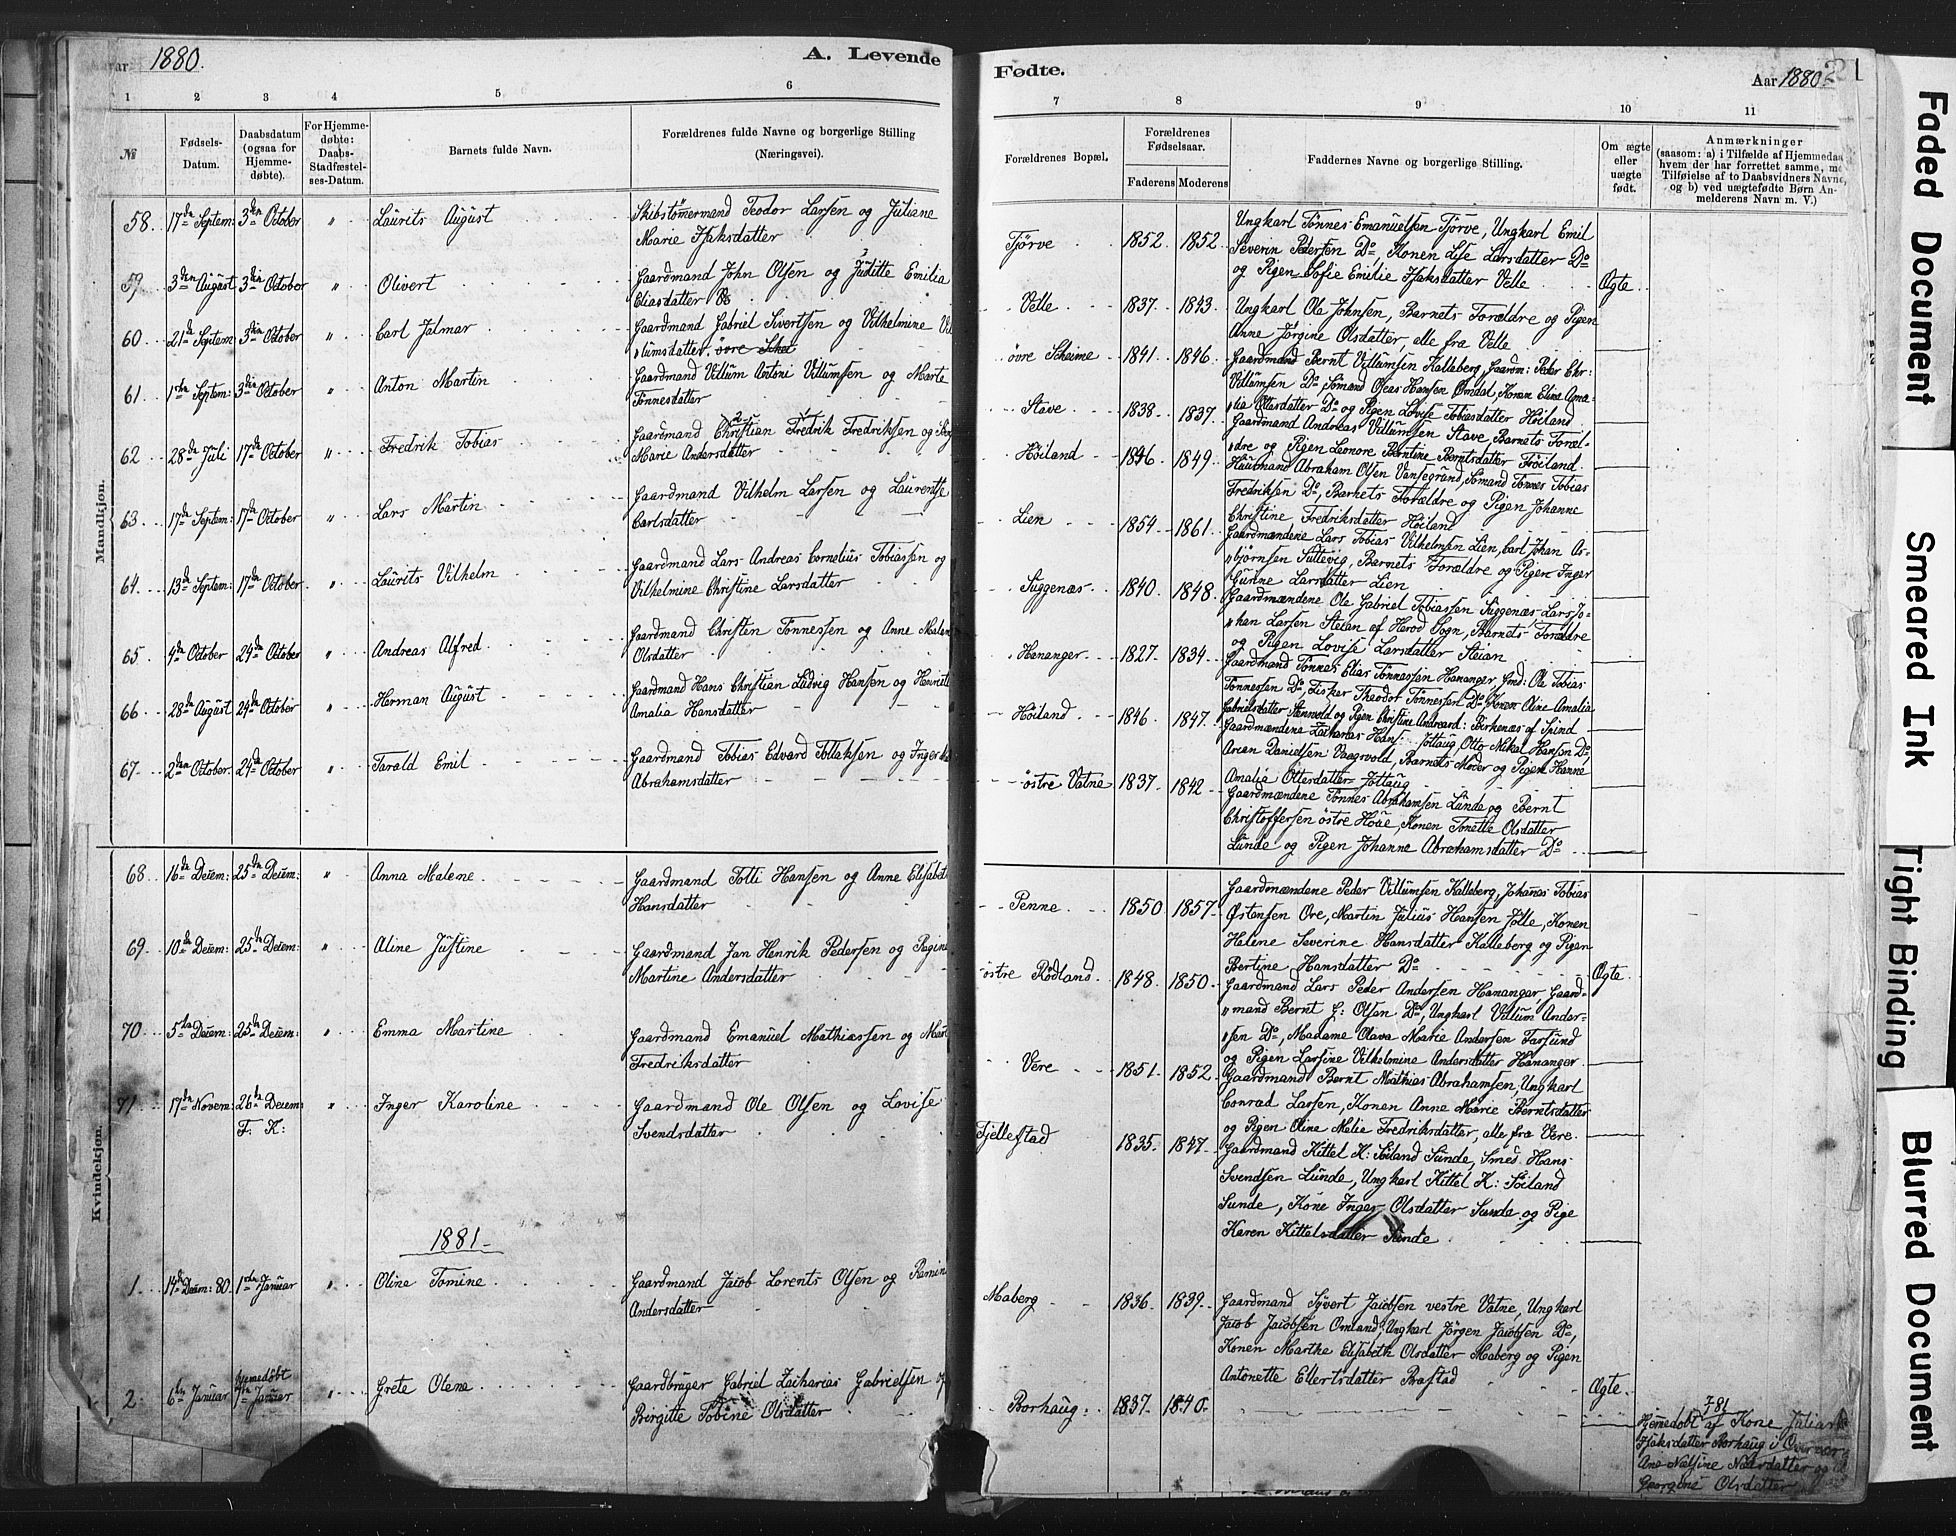 Aar 1880.
A. Levende
1 2 3 4 5 6
№
Fødsels-Datum.
Daabsdatum (ogsaa for Hjemme-døbte).
For Hjemme-døbte: Daabs-Stadfæstel-ses-Datum.
Barnets fulde Navn.
Forældrenes fulde Navne og borgerlige Stilling
(Næringsvei).
Mandkjøn.
58. 17de Septem: 3den October " Laurits August Skibstømermand Teodor Larsen og Juliane
Marie Isaksdatter
59. 3den August 3den October " Olivert Gaardmand John Olsen og Juditte Emilia
Eliasdatter
60 21de Septem 3den October " Carl Jalmar Gaardmand Gabriel Sivertsen og Vilhelmine Vil
"lumsdatter. övre Schei
61 1ste Septem: 3den October " Anton Martin Gaardmand Villum Antoni Villumsen og Marte
Tönnesdatter
62 28de Juli 17de October " Fredrik Tobias Gaardmand Christian Fredrik Fredriksen og
Marie Andersdatter
63 17de Septem: 17de October " Lars Martin Gaardmand Vilhelm Larsen og Laurentse
Carlsdatter
64. 13de Septem: 17de October " Laurits Vilhelm Gaardmand Lars Andreas Cornelius Tobiassen og
Vilhelmine Christine Larsdatter
65 4de October 24de October " Andreas Alfred Gaardmand Christen Tönnessen og Anne Malen
Olsdatter
66 28de August 24de October " Herman August Gaardmand Hans Christian Ludvig Hansen og Henriet
Amalia Hansdatter
67 2den October. 24de October " Tarald Emil Gaardmand Tobias Edvard Tollaksen og Inger
Abrahamsdatter
Kvindekjøn.
68 16de Decem: 25de Decem: " Anna Malene Gaardmand Tolli Hansen og Anne Elisabet
Hansdatter
69. 10de Decem: 25de Decem: " Aline Justine Gaardmand Jan Henrik Pedersen og Regine
Martine Andersdatter
70 5te Decem: 25de Decem: " Emma Martine Gaardmand Emanuel Mathiassen og Mart
Fredriksdatter
71 17de Novem: 26de Decem: " Inger Karoline Gaardmand Ole Olsen og Lovise
F. K: Svendsdatter
1881
1. 14de Decem: 80. 1ste Januar " Oline Tomine Gaardmand Jacob Lorents Olsen og Ramine
Andersdatter
Hjemedöbt
2. 6te Januar 7de Januar " Grete Olene Gaardbruger Gabriel Zacharias Gabrielsen og
Birgitte Tobine Olsdatter
Fødte.
Aar 1880.
21
7 8 9 10 11
Forældrenes Bopæl.
Forældrenes Fødselsaar.
Faderens Moderens
Faddernes Navne og borgerlige Stilling.
Om ægte eller uægte født.
Anmærkninger
(saasom: a) i Tilfælde af Hjemmedaab
hvem der har forrettet samme, me
Tilføielse af to Daabsvidners Navne,
og b) ved uægtefødte Børn An-
melderens Navn m. V.)
Tjörve 1852 1852 Ungkarl Tönnes Emanuelsen Tjörve, Ungkarl Emil
Severin Pedersen Do, Konen Lise Larsdatter Do
og Pigen Sofie Emilie Isaksdatter Velle Ægte
Velle 1837 1843 Ungkarl Ola Johnsen, Barnets Forældre og Pigen
Anne Jörgine Olsdatter alle fra Velle
övre Scheime 1841 1846 Gaardmand Bernt Villumsen Kalleberg, Gaardm: Peder Chr:
Villumsen Do Sömand Oleas Hansen Omdal, Konen Elina Ama-
"lia Ottersdatter Do og Pigen Lovise Tobiasdatter Höiland
Stave 1838 1837 Gaardmand Andreas Villumsen Stave, Barnets Foræl-
"dre og Pigen Leonore Berntine Berntsdatter Höiland
Höiland 1846 1849 Husmand Abraham Olsen Vansegrund, Sömand Tönnes Tobias
Fredriksen Do, Barnets Forældre og Pigen Johanne
Christine Fredriksdatter Höiland
Lien 1854 1861 Gaardmændene Lars Tobias Vilhelmsen Lien, Carl Johan As-
"björnsen Sullevig, Barnets Forældre og Pigen Inger
Gurine Larsdatter Lien
Suggenæs 1840 1848 Gaardmændene Ole Gabriel Tobiassen Suggenæs, Lars Jo-
"han Larsen Steian af Herod Sogn, Barnets Forældre
og Pigen Lovise Larsdatter Steian
Hananger 1827 1834 Gaardmand Tönnes Elias Tönnessen Hananger, Gmd: Ole Tobias
Tönnessen Do, Fisker Theodor Tönnessen Do Konen Oline Amalia
Gabrielsdatter Stenvold og Pigen Christine Andreasd: Birkenæs af Spind
Höiland 1846 1847 Gaardmændene Zacharias Hans: Jöllaug, Otto Mikal Hansen Do,
Arian Danielsen Vaagsvold, Barnets Moder og Pigen Hanne
Amalia Ottersdatter Jöllaug
östre Vatne 1837 1842 Gaardmændene Tönnes Abrahamsen Lunde og Bernt
Christoffersen östre Houe, Konen Tonette Olsdatter
Lunde og Pigen Johanne Abrahamsdatter Do
Penne 1850 1857 Gaardmændene Peder Villumsen Kalleberg, Johanas Tobias
Østensen Ore, Martin Julius Hansen Jölle, Konen
Helene Severine Hansdatter Kalleberg og Pigen
Bertine Hansdatter Do Ægte
östre Rödland 1848 1850 Gaardmand Lars Peder Andersen Hananger, Gaard-
"mand Bernt G: Olsen Do, Ungkarl Villum Ander-
"sen Do, Madame Olava Marie Andersen Farsund
og Pigen Larsine Vilhelmine Andersdatter Hananger
Vere 1851 1852 Gaardmand Bernt Mathias Abrahamsen, Ungkarl
Conrad Larsen, Konen Anne Marie Berntsdatter
og Pigen Oline Malie Fredriksdatter, alle fra Vere.
Fjellestad 1835 1847 Gaardmand Kittel K: Söiland Sunde, Smed Hans
Svendsen Lunde, Ungkarl Kittel K: Söiland
Sunde, Kone Inger Olsdatter Sunde og Pige
Karen Kittelsdatter Sunde
Maberg 1836 1839 Gaardmand Syvert Jacobsen vestre Vatne, Ungkarl
Jacob Jacobsen Omland, Ungkarl Jörgen Jacobsen Do,
Konen Marthe Elisabeth Olsdatter Maberg og Pigen
Antonette Ellertsdatter Brastad Ægte
Borhaug 1837 1840 781
Hjemedöbt af Kone Juliane
Isaksdatter Borhaug i Overvær
Ane Nælsine Nælsdatter og
Georgine Olsdatter
Faded Document
Smeared Ink
Tight Binding
Blurred Document